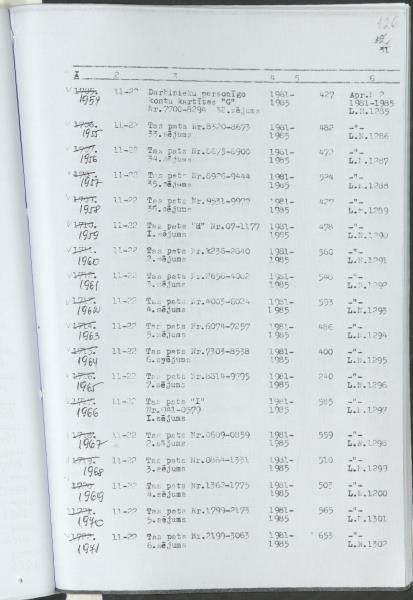 126
31
1 2 3 4 5 6
1954 11-22 Darbinieku personīgo 1981- 427 Apr.N 2
kontu kartītes "G" 1985 1981-1985
Nr.7700-8294 32.sējums L.N.1285
1955 11-22 Tas pats Nr.8320-8673 1981- 482 -"-
33.sējums 1985 L.N.1286
1956 11-22 Tas pats Nr.8675-8900 1981- -"-
34.sējums 1985 L.N.1287
1957 11-22 Tas pats Nr.8926-9444 1981- 524 -"-
35.sējums 1985 L.N.1288
1958 11-22 Tas pats Nr.9531-9972 1981- 427 -"-
36.sējums 1985 L.N.1289
1959 11-22 Tas pats "H" Nr.07-1177 1981- 478 -"-
1.sējums 1985 L.N.1290
1960 11-22 Tas pats Nr.1236-2640 1981- 560 -"-
2.sējums 1985 L.N.1291
1961 11-22 Tas pats Nr.2656-4002 1981- 546 -"-
3.sējums 1985 L.N.1292
1962 11-22 Tas pats Nr.4003-6024 1981- 593 -"-
4.sējums 1985 L.N.1293
1963 11-22 Tas pats Nr.6074-7257 1981- 486 -"-
5.sējums 1985 L.N.1294
1964 11-22 Tas pats Nr.7303-8538 1981- 400 -"-
6.sējums 1985 L.N.1295
1965 11-22 Tas pats Nr.8614-9795 1981- 240 -"-
7.sējums 1985 L.N.1296
1966 11-22 Tas pats "I" 1981- 585 -"-
Nr.041-0579 1985 L.N.1297
1.sējums
1967 11-22 Tas pats Nr.0609-0859 1981- 559 -"-
2.sējums 1985 L.N.1298
1968 11-22 Tas pats Nr.0864-1331 1981- 510 -"-
3.sējums 1985 L.N.1299
1969 11-22 Tas pats Nr.1362-1775 1981- 503 -"-
4.sējums 1985 L.N.1200
1970 11-22 Tas pats Nr.1799-2173 1981- 565 -"-
5.sējums 1985 L.N.1301
1971 11-22 Tas pats Nr.2199-3063 1981- 653 -"-
6.sējums 1985 L.N.1302